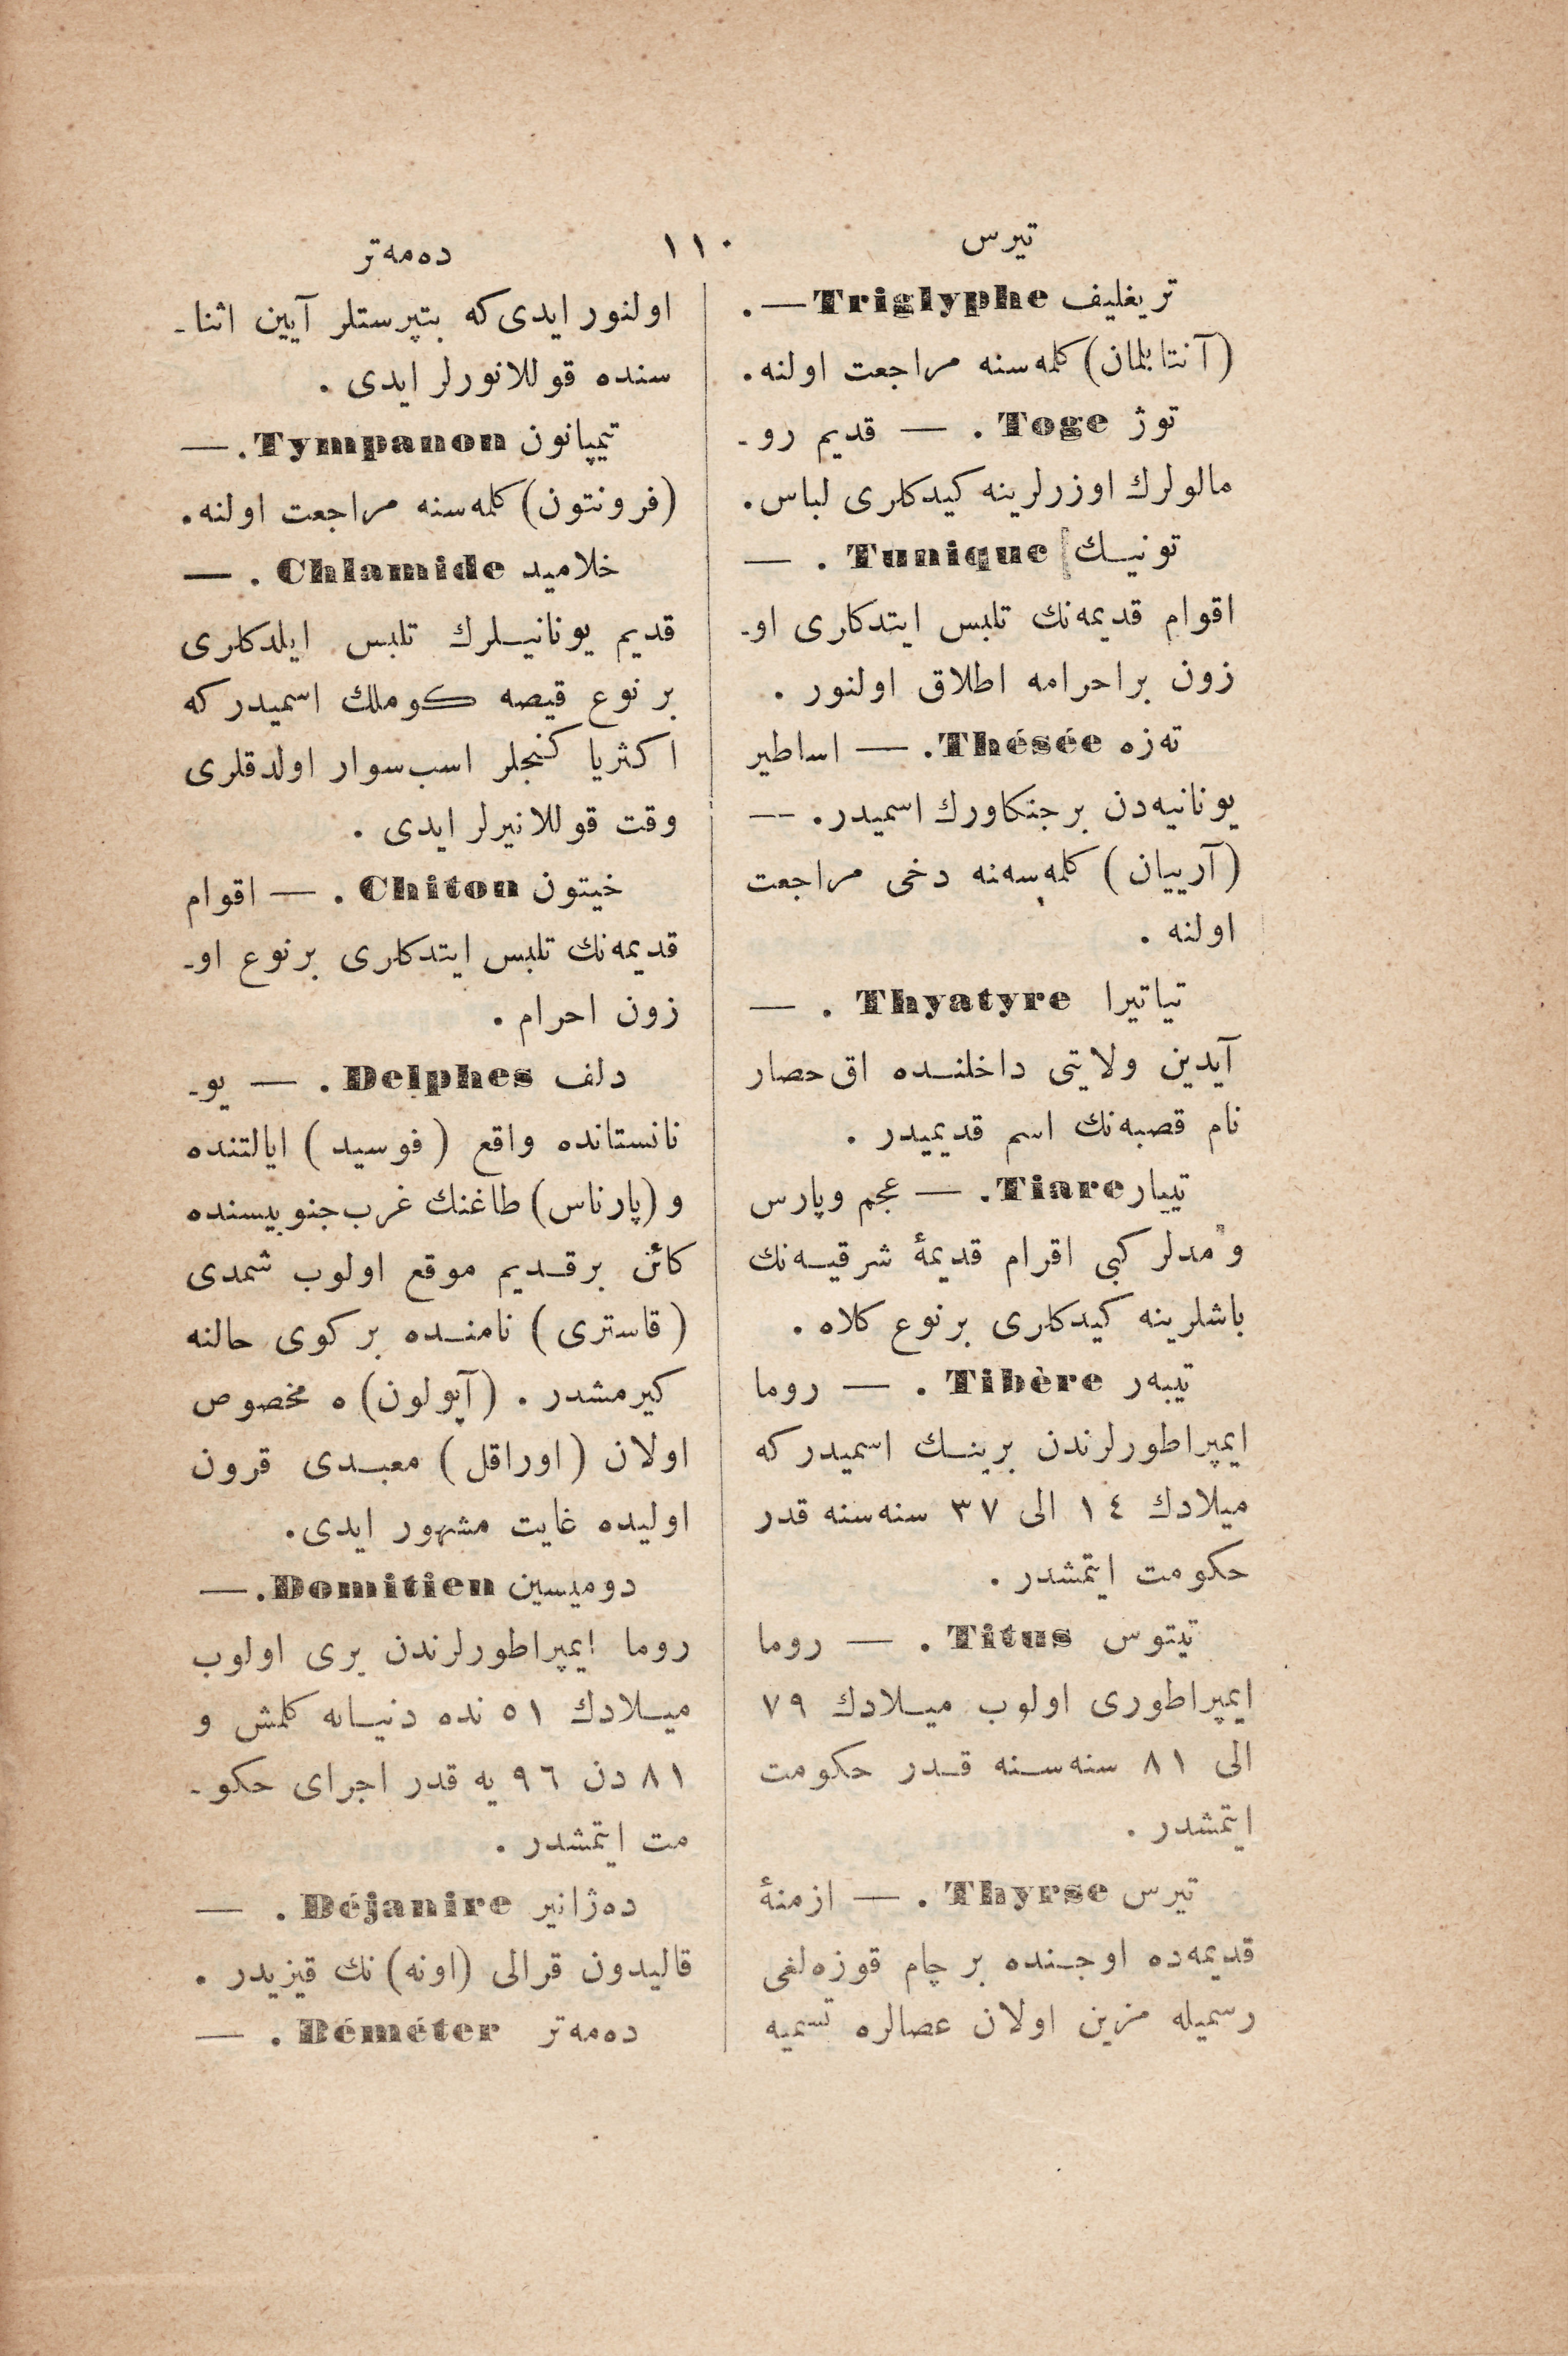 تيرس
١١٠
ده‌مه‌تر
تريغليف Triglyphe —.
(آنتابلمان) كلمه‌سنه مراجعت اولنه.
توژ Toge . — قديم رو-
مالولرك اوزرلرينه كيدكلرى لباس.
تونيــك Tunique . —
اقوام قديمه‌نك تلبس ايتدكارى او-
زون براحرامه اطلاق اولنور .
ته‌زه Thésée. — اساطير
يونانيه‌دن برجنكاورك اسميدر. —
(آرييان) كلمه‌سه‌نه دخى مراجعت
اولنه .
تياتيرا Thyatyre . —
آيدين ولايتى داخلنــده اق‌حصار
نام قصبه‌نك اسم قديميدر .
تييار Tiare. — عجم وپارس
و مدلر كبى اقرام قديمۀ شرقيــه‌نك
باشلرينه كيدكارى برنوع كلاه .
تيبه‌ر Tibère . — روما
ايمپراطورلرندن برينــك اسميدركه
ميلادك ١٤ الى ٣٧ سنه‌سنه قدر
حكومت ايتمشدر .
تيتوس Titus . — روما
ايمپراطورى اولوب ميــلادك ٧٩
الى ٨١ سنه‌ســنه قــدر حكومت
ايتمشدر .
تيرس Thyrse . — ازمنۀ
قديمه‌ده اوجــنده بر چام قوزه‌لغى
رسميله مزين اولان عصالره تسميه
اولنور ايدى‌كه بتپرستلر آيين اثنا-
سنده قوللانورلر ايدى .
تيمپانون Tympanon. —
(فرونتون) كلمه‌سنه مراجعت اولنه.
خلاميد Chlamide . —
قديم يونانيــلرك تلبس ايلدكلرى
بر نوع قيصه كوملك اسميدركه
اكثريا كنجلر اسب‌سوار اولدقلرى
وقت قوللانيرلر ايدى .
خيتون Chiton . — اقوام
قديمه‌نك تلبس ايتدكارى برنوع او-
زون احرام .
دلف Delphes . — يو-
نانستانده واقع (فوسيد) ايالتنده
و (پارناس) طاغنك غرب‌جنوبيسنده
كائن برقــديم موقع اولوب شمدى
(قاسترى) نامنــده بر كوى حالنه
كيرمشدر . (آپولون) ه مخصوص
اولان (اوراقل) معبــدى قرون
اوليده غايت مشهور ايدى.
دوميسين Domitien. —
روما ايمپراطورلرندن برى اولوب
ميــلادك ٥١ نده دنيــايه كلمش و
٨١ دن ٩٦ يه قدر اجراى حكو-
مت ايتمشدر .
ده‌ژانير Déjanire . —
قاليدون قرالى (اونه) نك قيزيدر .
ده‌مه‌تر Déméter . —